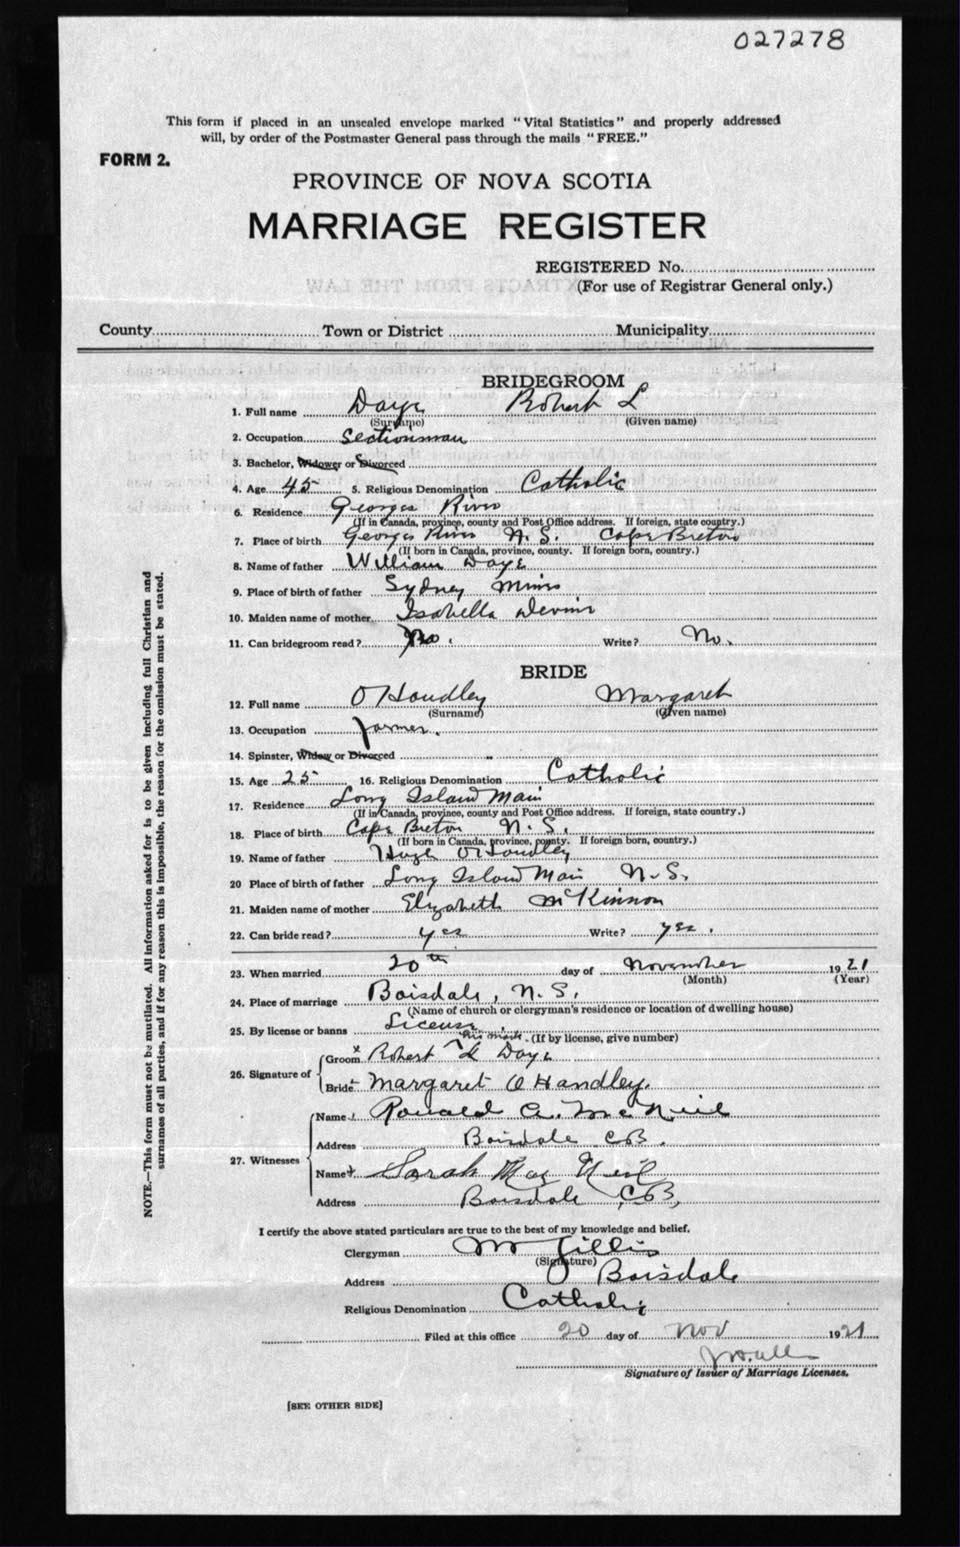 027278
This form if placed in an unsealed envelope marked "Vital Statistics" and properly addressed
will, by order of the Postmaster General pass through the mails "FREE."
FORM 2.
PROVINCE OF NOVA SCOTIA
MARRIAGE REGISTER
REGISTERED No.
(For use of Registrar General only.)
County Town or District Municipality
BRIDEGROOM
1. Full name Daye Robert L
(Surname) (Given name)
2. Occupation Sectionman
3. Bachelor, Widower or Divorced
4. Age 45 5. Religious Denomination Catholic
6. Residence Georges River
(If in Canada, province, county and Post Office address. If foreign, state country.)
7. Place of birth Georges River N. S. Cape Breton
(If born in Canada, province, county. If foreign born, country.)
8. Name of father William Daye
9. Place of birth of father Sydney Mines
10. Maiden name of mother Isabella
11. Can bridegroom read? No. Write? No.
BRIDE
12. Full name O'Handley Margaret
(Surname) (Given name)
13. Occupation farmer.
14. Spinster, Widow or Divorced
15. Age 25 16. Religious Denomination Catholic
17. Residence Long Island Main
(If in Canada, province, county and Post Office address. If foreign, state country.)
18. Place of birth Cape Breton N. S.
(If born in Canada, province, county. If foreign born, country.)
19. Name of father Hugh O'Handley
20 Place of birth of father Long Island Main N. S.
21. Maiden name of mother Elizabeth McKinnon
22. Can bride read? yes Write? yes.
23. When married 20th day of November 1921
(Month) (Year)
24. Place of marriage Boisdale, N. S.
(Name of church or clergyman's residence or location of dwelling house)
25. By license or banns License (If by license, give number)
his mark
26. Signature of
Groom x Robert L Daye
Bride Margaret O Handley.
27. Witnesses
Name Ronald A. McNeil
Address Boisdale C.B.
Name Sarah Mac Neil
Address Boisdale C.B,
I certify the above stated particulars are true to the best of my knowledge and belief.
Clergyman M Gillis
(Signature)
Address Boisdale
Religious Denomination Catholic
Filed at this office 20 day of Nov 1921
Signature of Issuer of Marriage Licenses.
[SEE OTHER SIDE]
NOTE.—This form must not be mutilated. All information asked for is to be given including full Christian and
surnames of all parties, and if for any reason this is impossible, the reason for the omission must be stated.